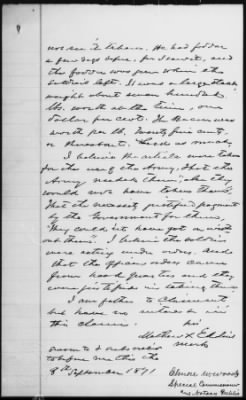 not see it taken. He had fodder
a few days before, for I saw it, and
the fodder was gone when the
soldiers left. It was a large stack
weight about seven hundred
lbs. worth at the time, one
dollar per cwt. The Bacon was
worth per lb. twenty five cents,
I believe the articles were taken
for the use of the Army, that the
Army needed them, that they
would not have taken them
that the necessity justified payment
by the Government for them,
They could not have got on with
out them. I believe the soldiers
were acting under orders. And
that the officers orders came
from head quarters and they
were justified in taking them
I am father to Claimant
but have no interest in
this claim. his
Mathew X
mark
Sworn to & subscribed
to before me this the
8th September 1871
Elmore Woods
Special Commissioner
and Notary Public